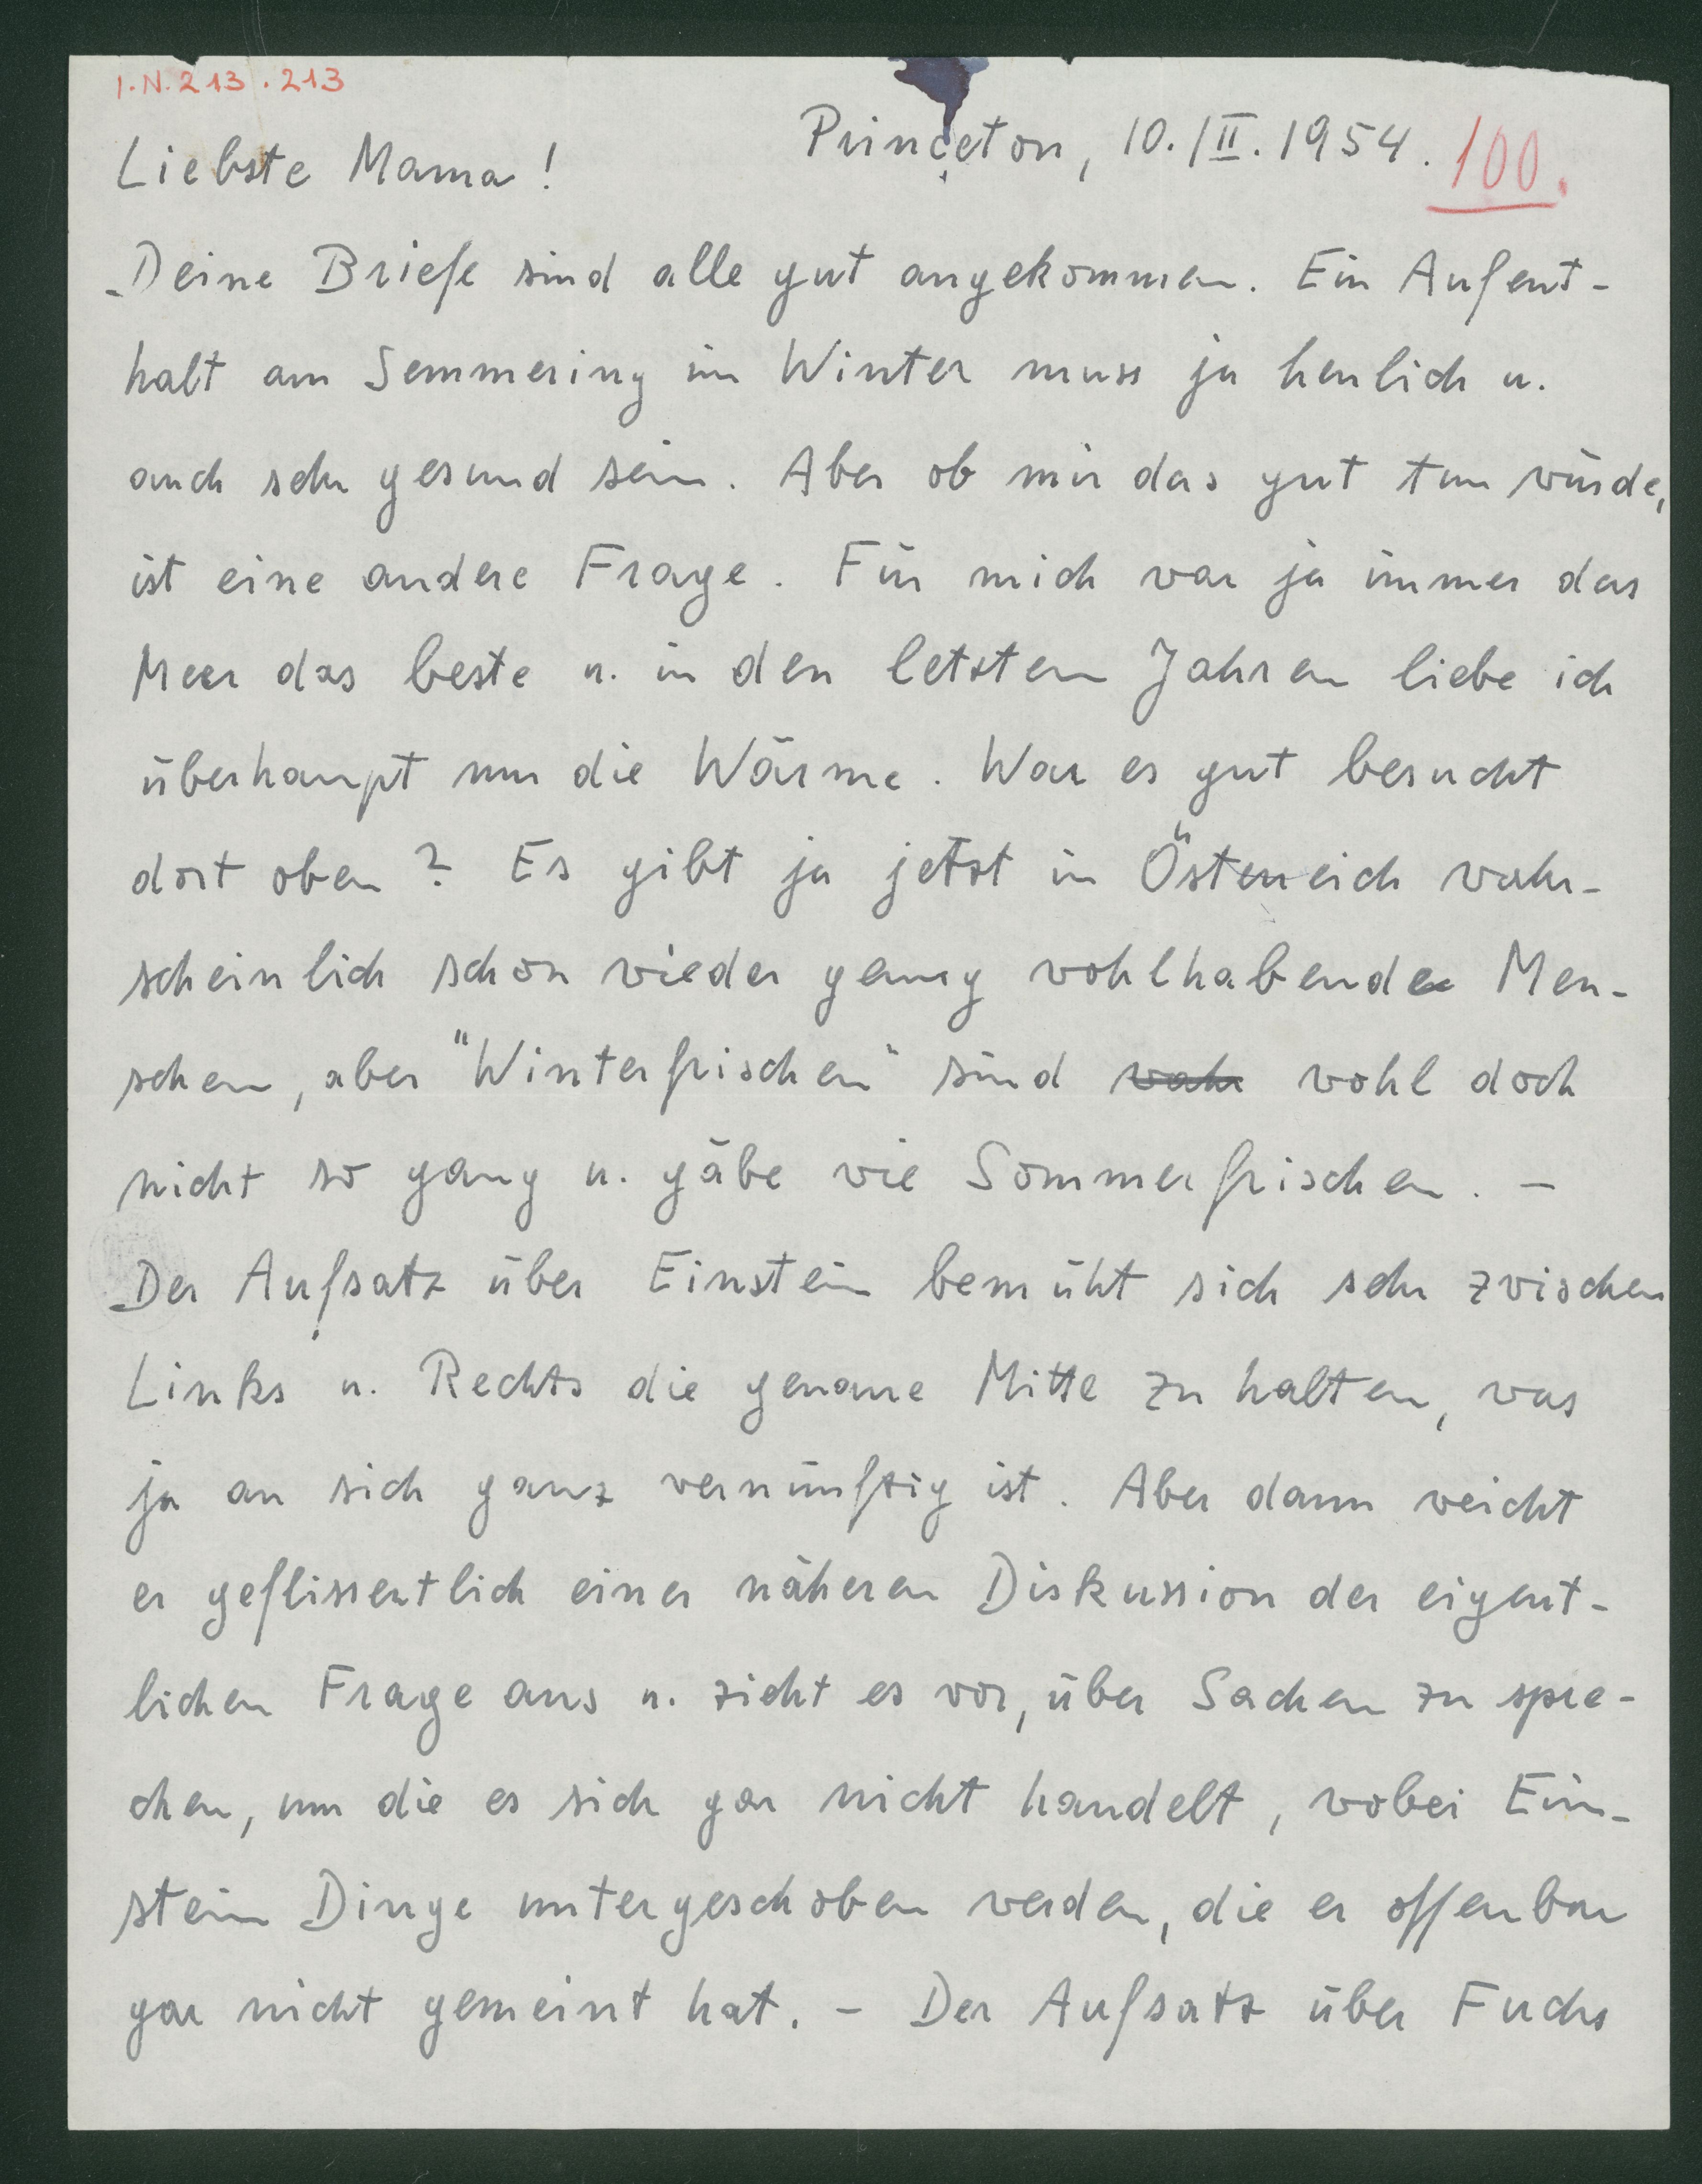 I.N. 213.213
Princeton, 10./II. 1954. 100.
Liebste Mama!
Deine Briefe sind alle gut angekommen. Ein Aufent-
halt am Semmering im Winter muss ja herrlich u.
auch sehr gesund sein. Aber ob mir das gut tun würde,
ist eine andere Frage. Für mich war ja immer das
Meer das beste u. in den letzten Jahren liebe ich
überhaupt nur die Wärme. War es gut besucht
dort oben? Es gibt ja jetzt in Österreich wahr-
scheinlich schon wieder genug wohlhabende Men-
schen, aber "Winterfrischen" sind wahr wohl doch
nicht so gang u. gäbe wie Sommerfrischen. –
Der Aufsatz über Einstein bemüht sich sehr zwischen
Links u. Rechts die genaue Mitte zu halten, was
ja an sich ganz vernünftig ist. Aber dann weicht
er geflissentlich einer näheren Diskussion der eigent-
lichen Frage aus u. zieht es vor, über Sachen zu spre-
chen, um die es sich gar nicht handelt, wobei Ein-
stein Dinge untergeschoben werden, die er offenbar
gar nicht gemeint hat. – Der Aufsatz über Fuchs